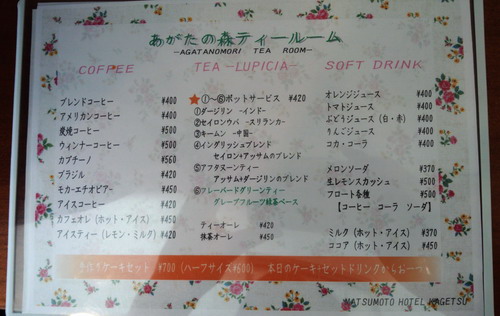 あがたの森ティールーム
—AGATANOMORI TEA ROOM—
COFFEE
ブレンドコーヒー ¥400
アメリカンコーヒー ¥400
炭焼コーヒー ¥500
ウィンナーコーヒー ¥500
カプチーノ ¥560
ブラジル ¥420
モカ-エチオピア- ¥450
アイスコーヒー ¥420
カフェオレ（ホット・アイス） ¥450
アイスティー（レモン・ミルク） ¥420
TEA —LUPICIA—
★①～⑥ポットサービス ¥420
①ダージリン —インド—
②セイロンウバ —スリランカ—
③キームン —中国—
④イングリッシュブレンド
セイロン+アッサムのブレンド
⑤アフタヌーンティー
アッサム+ダージリンのブレンド
⑥フレーバードグリーンティー
グレープフルーツ緑茶ベース
ティーオーレ ¥420
抹茶オーレ ¥450
SOFT DRINK
オレンジジュース ¥400
トマトジュース ¥400
ぶどうジュース（白・赤） ¥400
りんごジュース ¥400
コカ・コーラ ¥400
メロンソーダ ¥370
生レモンスカッシュ ¥500
フロート各種 ¥500
【コーヒー コーラ ソーダ】
ミルク（ホット・アイス） ¥370
ココア（ホット・アイス） ¥450
ケーキセット ¥700（ハーフサイズ¥600） 本日のケーキ+セットドリンクからお一つ
MATSUMOTO HOTEL KAGETSU